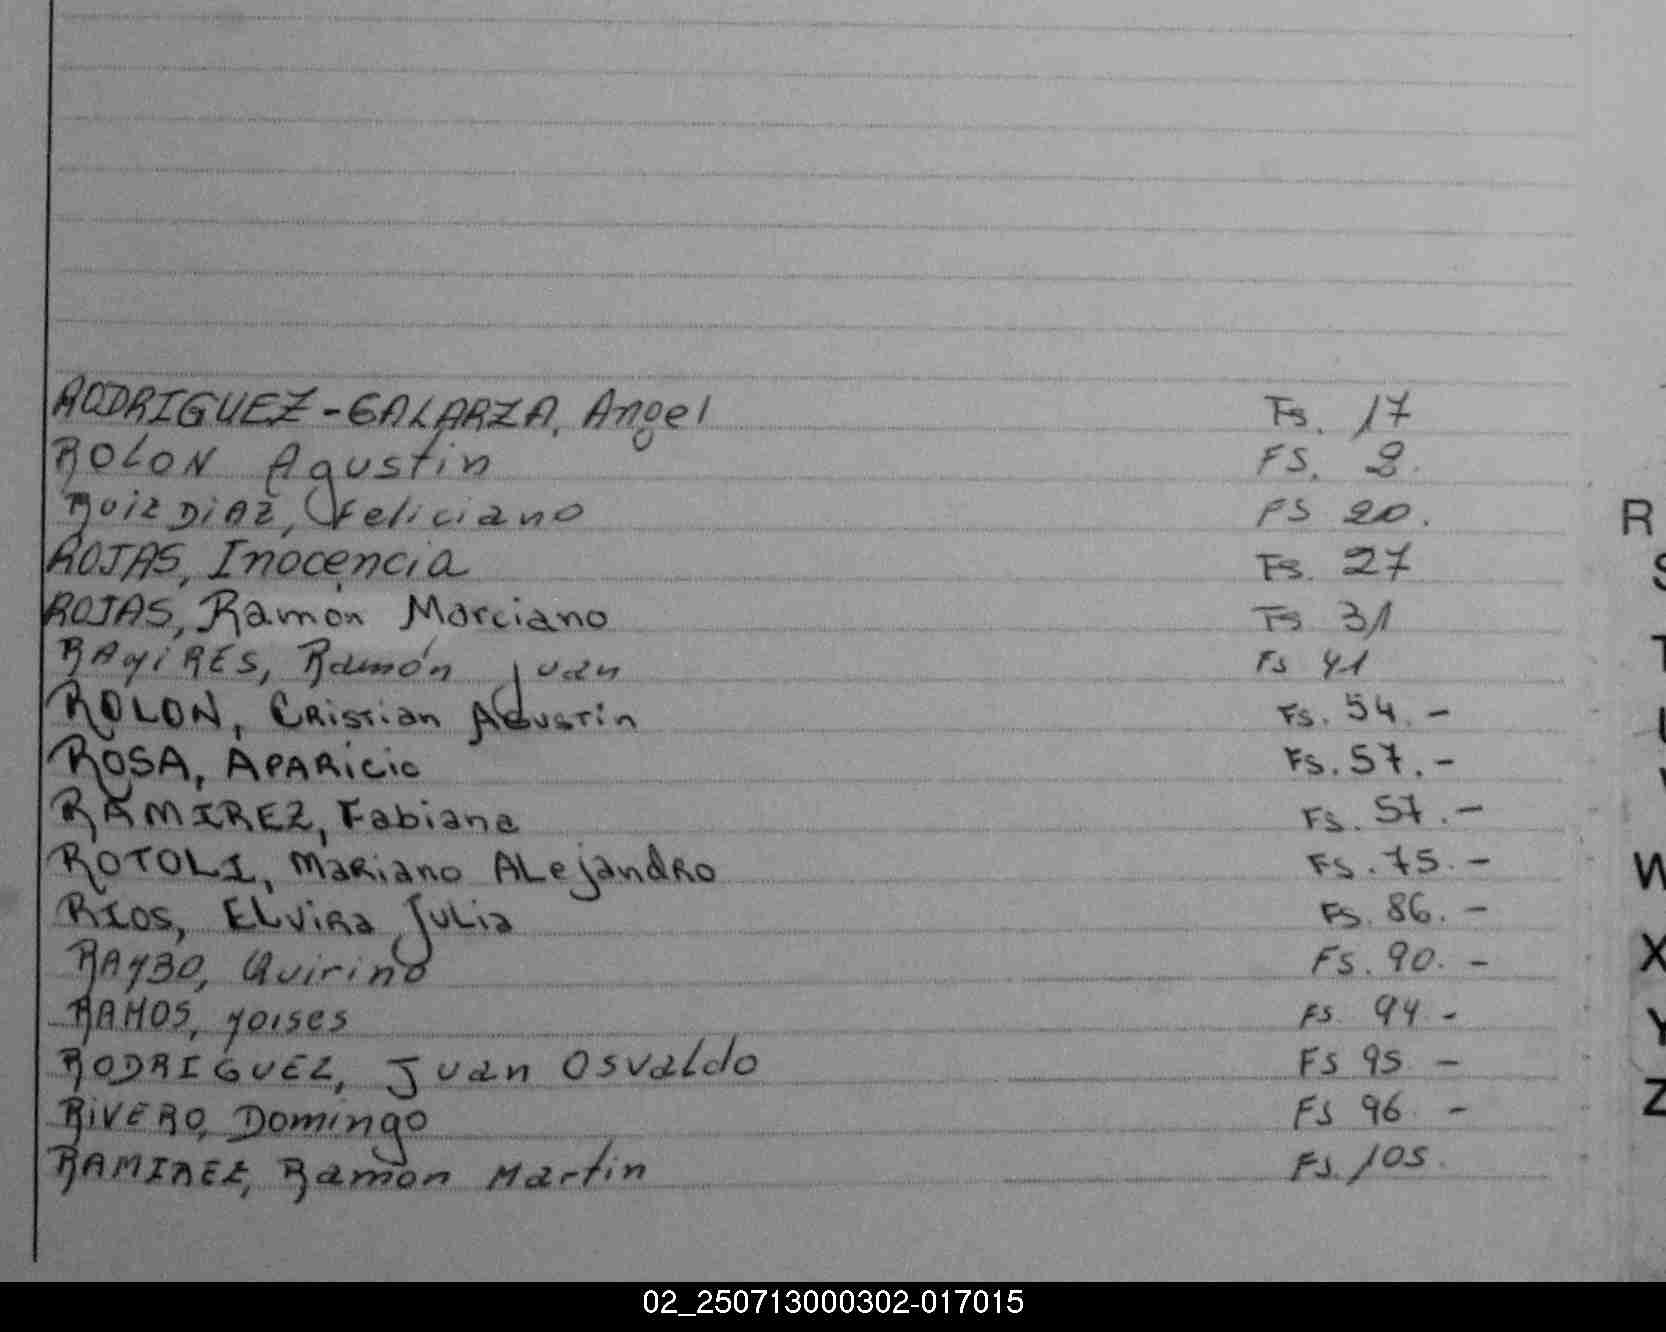 RODRIGUEZ-GALARZA, Angel Fs. 17
ROLON Agustin FS. 8.
RUIZ DIAZ, Feliciano FS 20.
ROJAS, Inocencia Fs. 27
ROJAS, Ramón Marciano Fs 31
RAMIRES, Ramón Juan Fs 41
ROLON, Cristian Agustin Fs. 54.-
ROSA, APARicio Fs. 57.-
RAMIREZ, Fabiana Fs. 57.-
ROTOLI, Mariano Alejandro Fs. 75.-
RIOS, Elvira Julia Fs. 86.-
Quirino Fs. 90.-
RAMOS, Moises Fs. 94.-
RODRIGUEZ, Juan Osvaldo Fs 95 -
RIVERO, Domingo Fs 96 -
RAMIREZ, Ramon Martin Fs. 105.
R
S
T
U
V
W
X
Y
Z
02_250713000302-017015